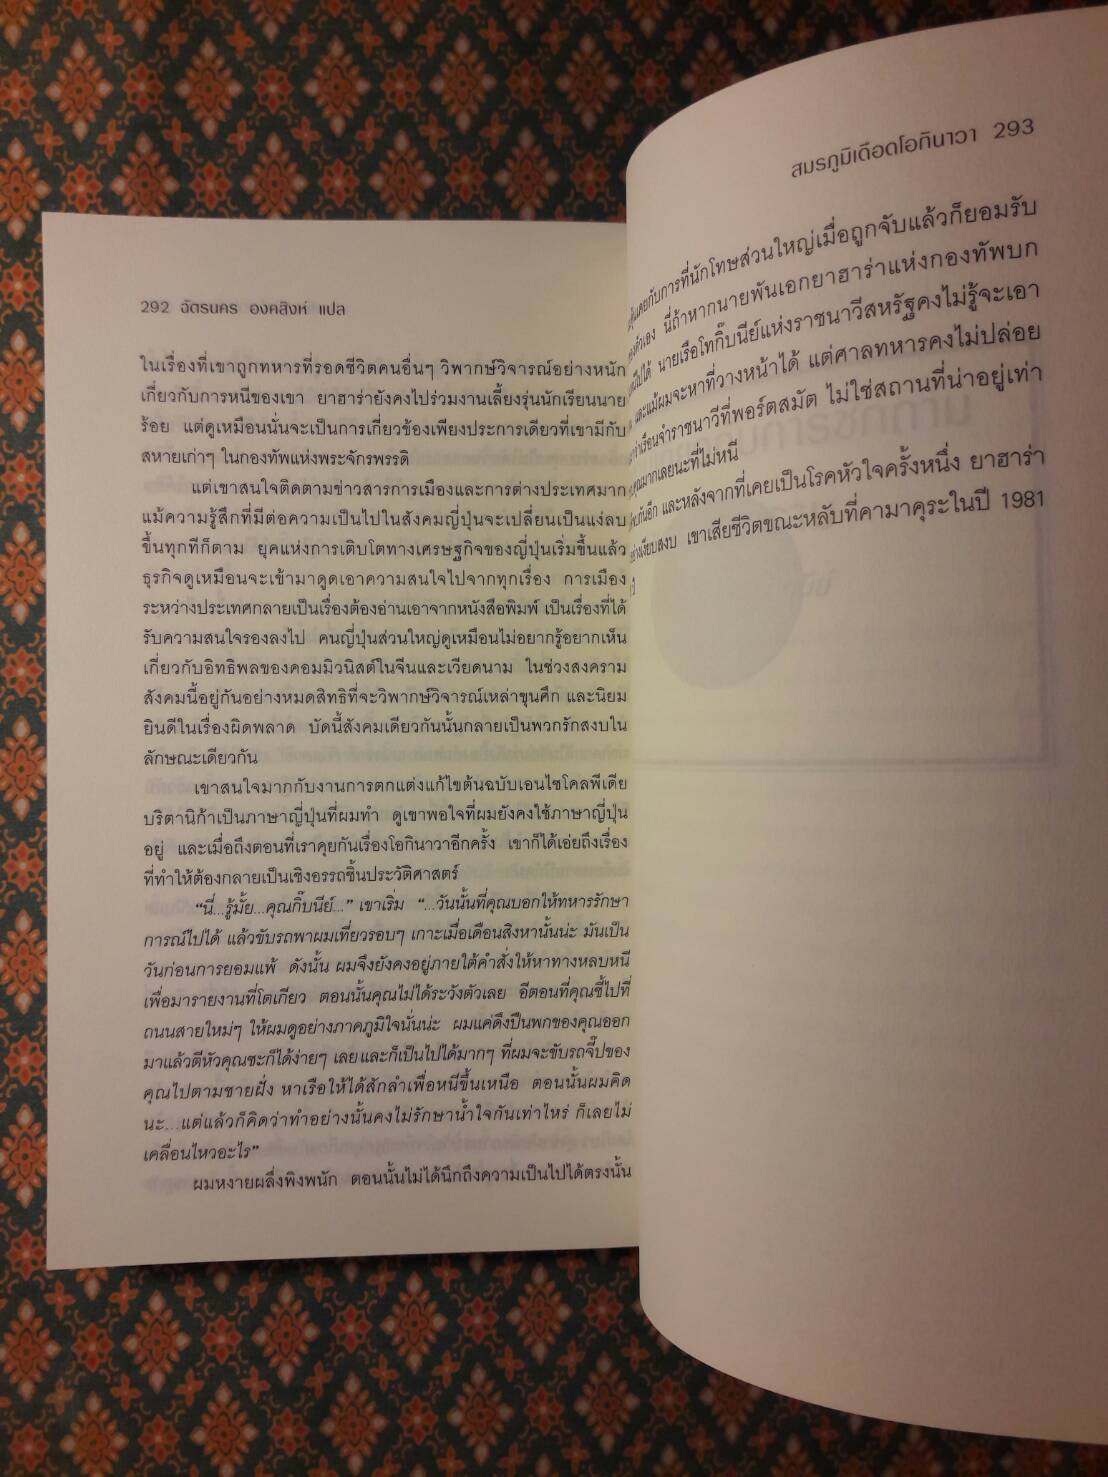 292 ฉัตรนคร องคสิงห์ แปล
ในเรื่องที่เขาถูกทหารที่รอดชีวิตคนอื่นๆ วิพากษ์วิจารณ์อย่างหนัก
เกี่ยวกับการหนีของเขา ยาฮาร่ายังคงไปร่วมงานเลี้ยงรุ่นนักเรียนนาย
ร้อย แต่ดูเหมือนนั่นจะเป็นการเกี่ยวข้องเพียงประการเดียวที่เขามีกับ
สหายเก่าๆ ในกองทัพแห่งพระจักรพรรดิ
แต่เขาสนใจติดตามข่าวสารการเมืองและการต่างประเทศมาก
แม้ความรู้สึกที่มีต่อความเป็นไปในสังคมญี่ปุ่นจะเปลี่ยนเป็นแง่ลบ
ขึ้นทุกทีก็ตาม ยุคแห่งการเติบโตทางเศรษฐกิจของญี่ปุ่นเริ่มขึ้นแล้ว
ธุรกิจดูเหมือนจะเข้ามาดูดเอาความสนใจไปจากทุกเรื่อง การเมือง
ระหว่างประเทศกลายเป็นเรื่องต้องอ่านเอาจากหนังสือพิมพ์ เป็นเรื่องที่ได้
รับความสนใจรองลงไป คนญี่ปุ่นส่วนใหญ่ดูเหมือนไม่อยากรู้อยากเห็น
เกี่ยวกับอิทธิพลของคอมมิวนิสต์ในจีนและเวียดนาม ในช่วงสงคราม
สังคมนี้อยู่กันอย่างหมดสิทธิที่จะวิพากษ์วิจารณ์เหล่าขุนศึก และนิยม
ยินดีในเรื่องผิดพลาด บัดนี้สังคมเดียวกันนั้นกลายเป็นพวกรักสงบใน
ลักษณะเดียวกัน
เขาสนใจมากกับงานการตกแต่งแก้ไขต้นฉบับเอนไซโคลพีเดีย
บริตานิก้าเป็นภาษาญี่ปุ่นที่ผมทำ ดูเขาพอใจที่ผมยังคงใช้ภาษาญี่ปุ่น
อยู่ และเมื่อถึงตอนที่เราคุยกันเรื่องโอกินาวาอีกครั้ง เขาก็ได้เอ่ยถึงเรื่อง
ที่ทำให้ต้องกลายเป็นเชิงอรรถชิ้นประวัติศาสตร์
“นี่...รู้มั้ย...คุณกิ๊บนีย์...” เขาเริ่ม “...วันนั้นที่คุณบอกให้ทหารรักษา
การณ์ไปได้ แล้วขับรถพาผมเที่ยวรอบๆ เกาะเมื่อเดือนสิงหานั้นน่ะ มันเป็น
วันก่อนการยอมแพ้ ดังนั้น ผมจึงยังคงอยู่ภายใต้คำสั่งให้หาทางหลบหนี
เพื่อมารายงานที่โตเกียว ตอนนั้นคุณไม่ได้ระวังตัวเลย อีตอนที่คุณชี้ไปที่
ถนนสายใหม่ๆ ให้ผมดูอย่างภาคภูมิใจนั่นน่ะ ผมแค่ดึงปืนพกของคุณออก
มาแล้วตีหัวคุณซะก็ได้ง่ายๆ เลยและก็เป็นไปได้มากๆ ที่ผมจะขับรถจี๊ปของ
คุณไปตามชายฝั่ง หาเรือให้ได้สักลำเพื่อหนีขึ้นเหนือ ตอนนั้นผมคิด
นะ...แต่แล้วก็คิดว่าทำอย่างนั้นคงไม่รักษาน้ำใจกันเท่าไหร่ ก็เลยไม่
เคลื่อนไหวอะไร”
ผมหงายผลึ่งพิงพนัก ตอนนั้นไม่ได้นึกถึงความเป็นไปได้ตรงนั้น
สมรภูมิเดือดโอกินาวา 293
คุ้นเคยกับการที่นักโทษส่วนใหญ่เมื่อถูกจับแล้วก็ยอมรับ
ตัวเอง นี่ถ้าหากนายพันเอกยาฮาร่าแห่งกองทัพบก
หนีไปได้ นายเรือโทกิ๊บนีย์แห่งราชนาวีสหรัฐคงไม่รู้จะเอา
และแม้ผมจะหาที่วางหน้าได้ แต่ศาลทหารคงไม่ปล่อย
ว่าเรือนจำราชนาวีที่พอร์ตสมัต ไม่ใช่สถานที่น่าอยู่เท่า
คุณมากเลยนะที่ไม่หนี
กันอีก และหลังจากที่เคยเป็นโรคหัวใจครั้งหนึ่ง ยาฮาร่า
อย่างเงียบสงบ เขาเสียชีวิตขณะหลับที่คามาคุระในปี 1981